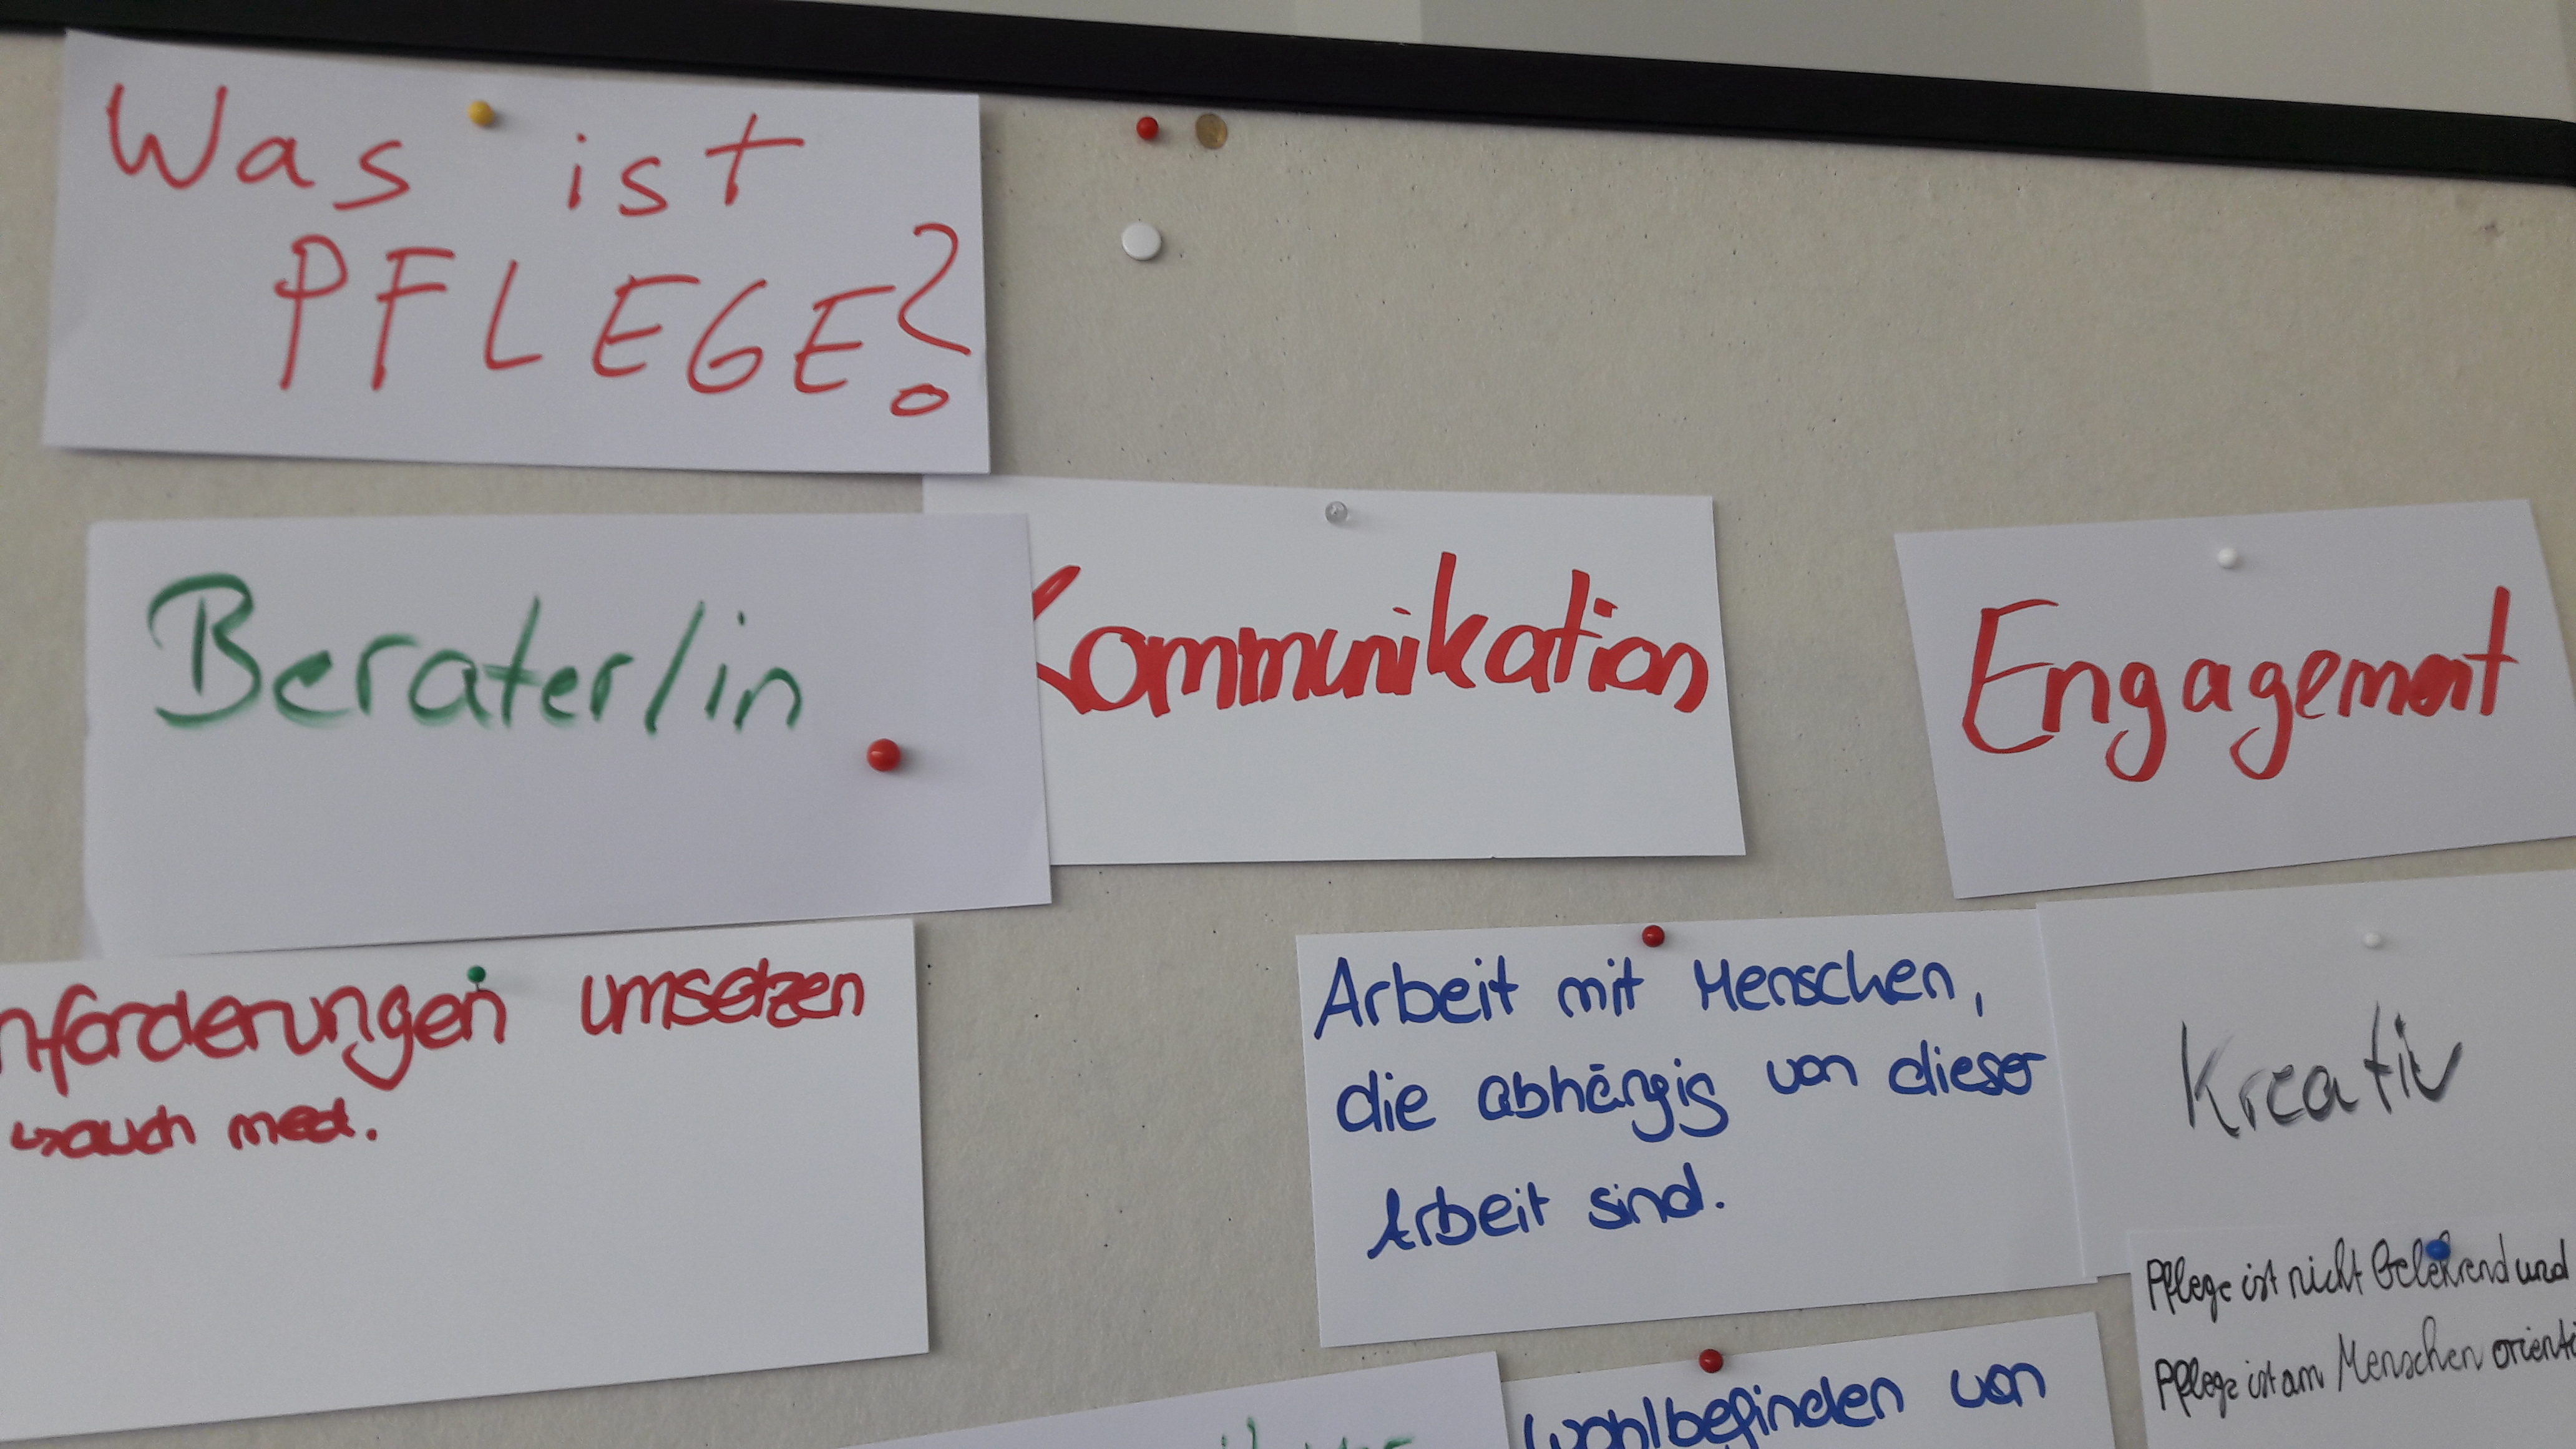 Was ist
PFLEGE?
Berater/in
Kommunikation
Engagement
nforderungen umsetzen
↳auch med.
Arbeit mit Menschen,
die abhängig von dieser
Arbeit sind.
Kreativ
Pflege ist nicht Belehrend und
Pflege ist am Menschen orienti
Wohlbefinden von